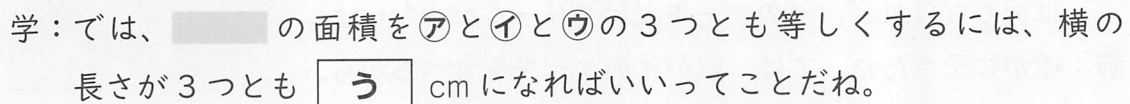 学：では、　　　の面積を㋐と㋑と㋒の３つとも等しくするには、横の
長さが３つとも う cmになればいいってことだね。